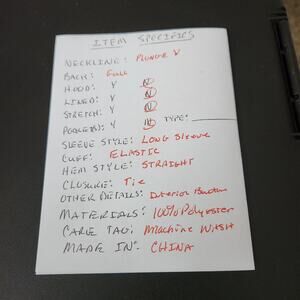 ITEM SPECIFICS
NECKLINE: PLUNGE V
BACK: FULL
HOOD: Y N
LINED: Y N
STRETCH: Y N
POCKET(S): Y N TYPE:
SLEEVE STYLE: LONG SLEEVE
CUFF: ELASTIC
HEM STYLE: STRAIGHT
CLOSURE: Tie
OTHER DETAILS: Interior Button
MATERIALS: 100% Polyester
CARE TAG: Machine Wash
MADE IN: CHINA